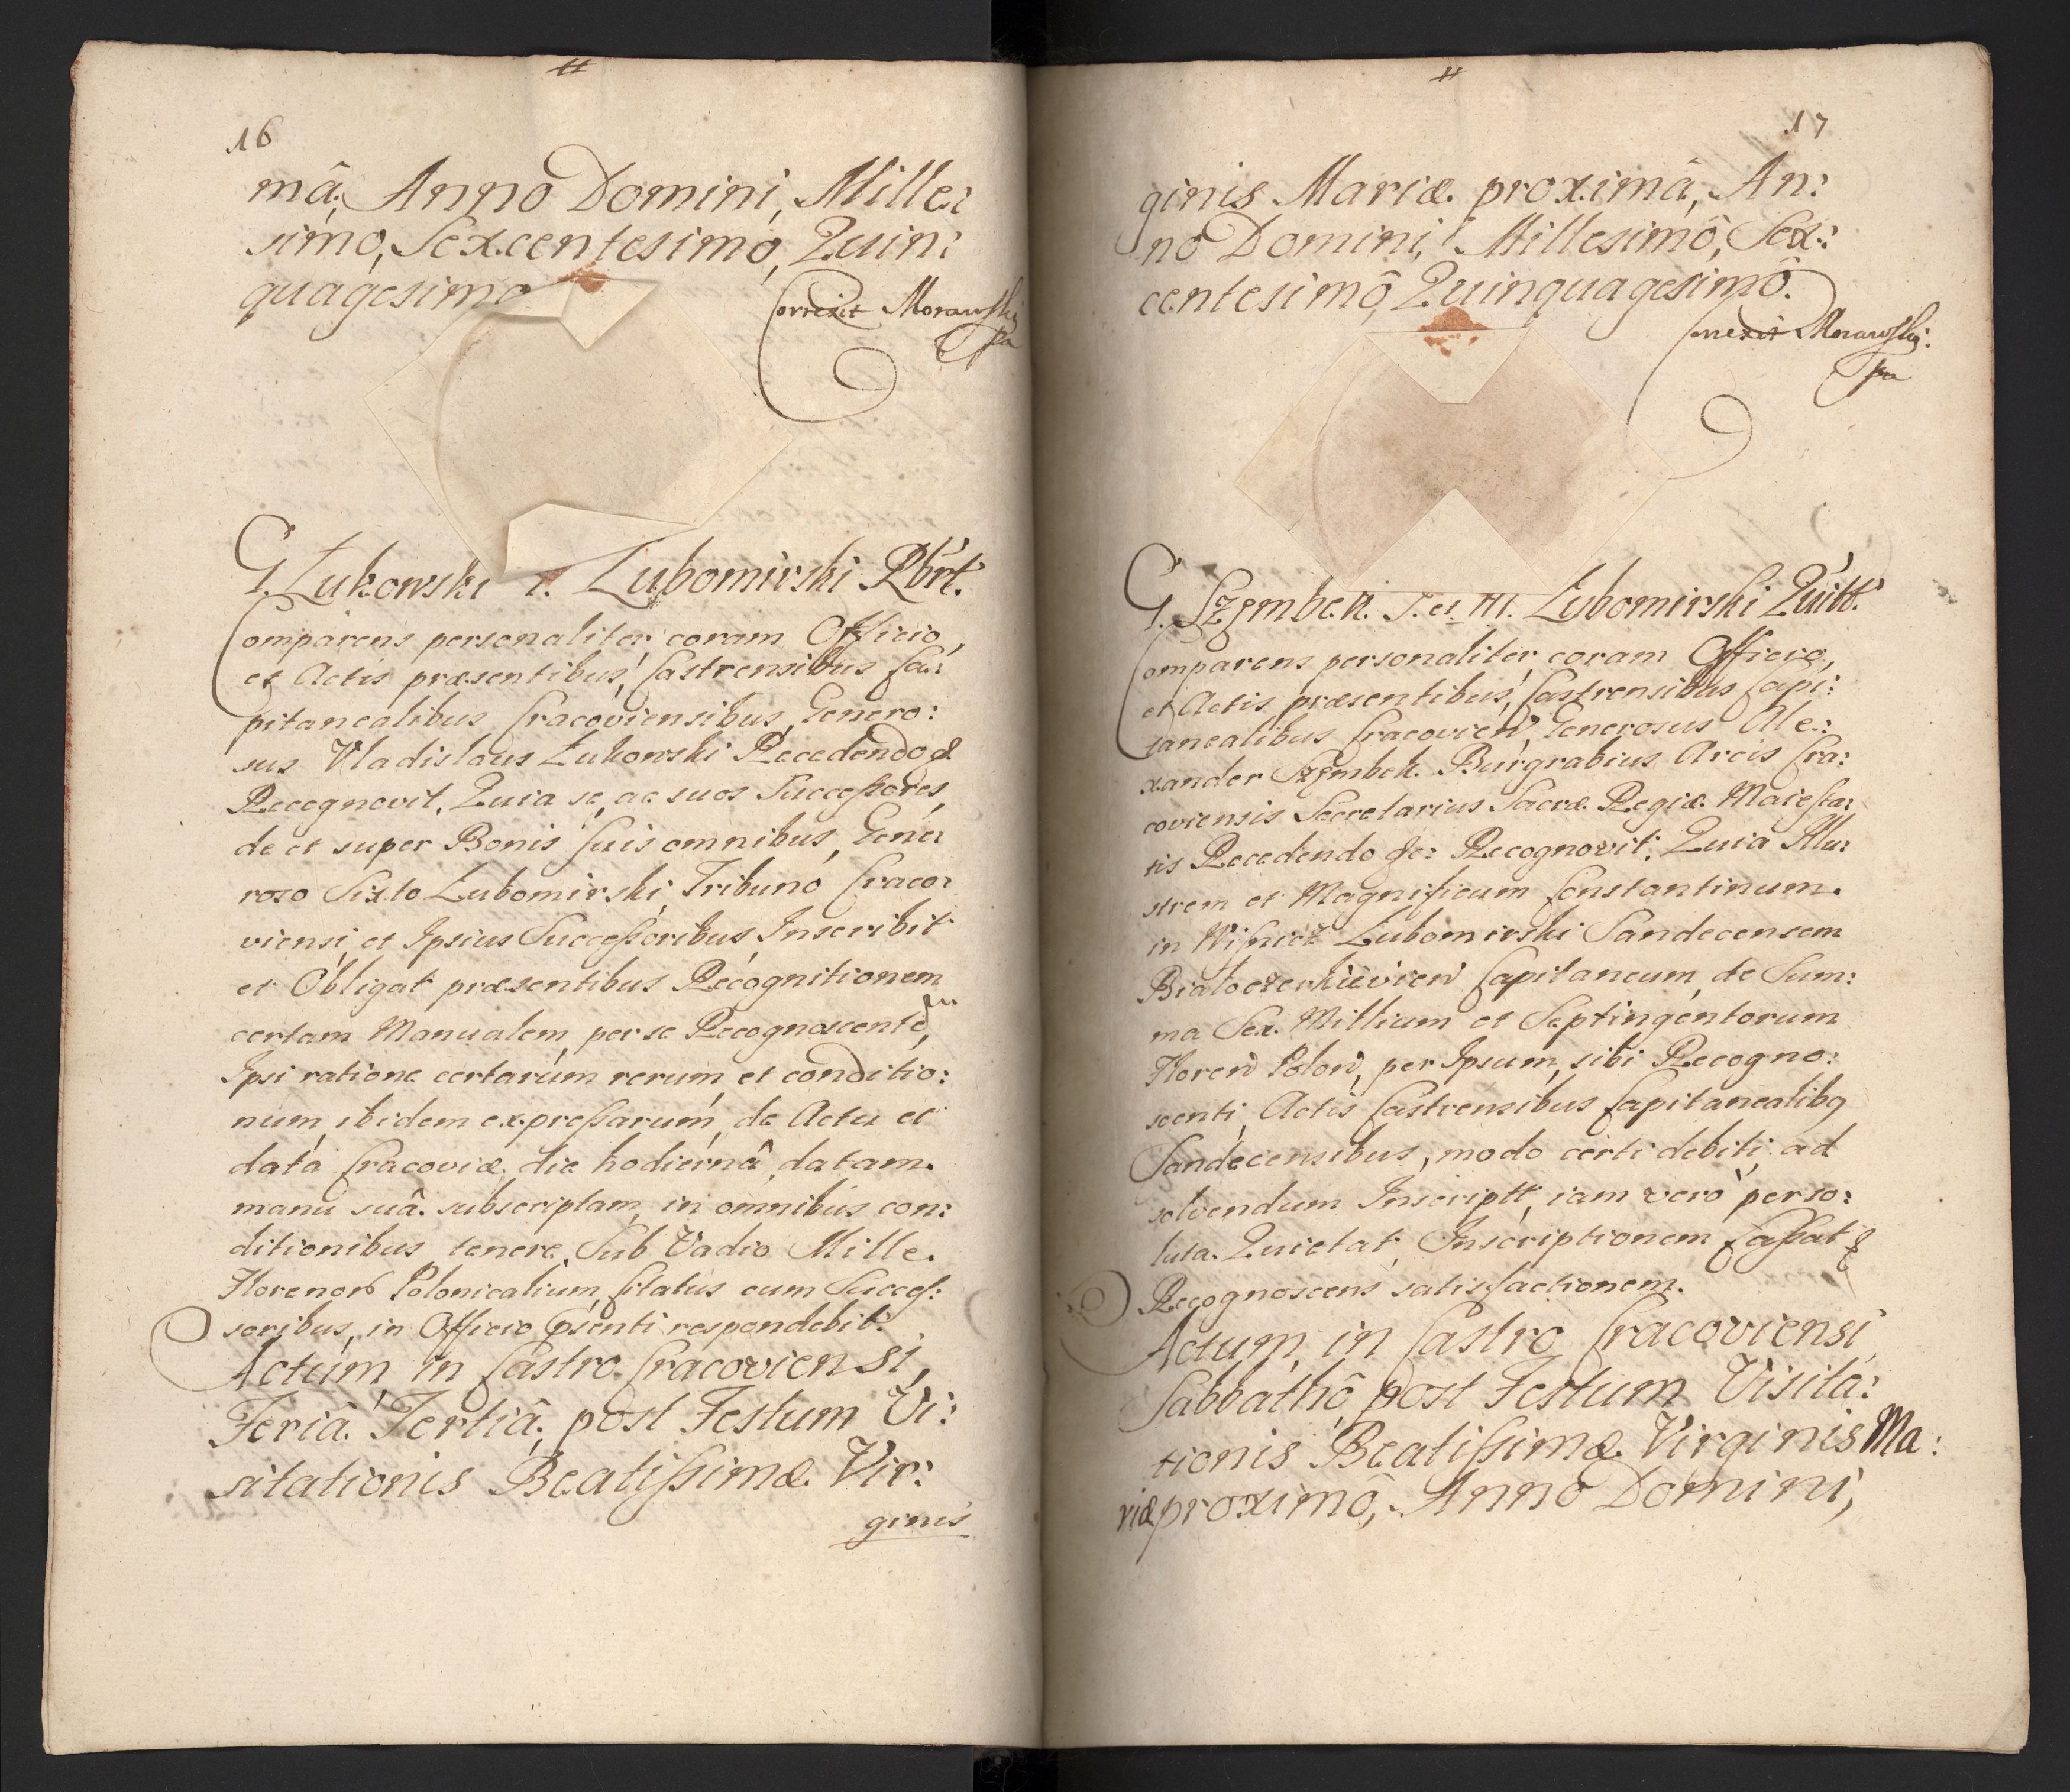 16
mâ, Anno Domini, Mille:
simo, Sexcentesimo, Quin:
quagesimo
Correxit Morawski
G. Łukowski G. Lubomirski Rbrt.
Comparens personaliter, coram Officio,
et Actis præsentibus, Castrensibus Ca:
pitanealibus Cracoviensibus, Genero:
sus Vladislaus Łukowski Recedendo &
Recognovit, Quia se, ac suos Successores,
de et super Bonis suis omnibus, Gene:
roso Sixto Lubomirski, Tribuno Craco:
viensi, et Ipsius Successoribus, Inscribit
et Obligat præsentibus Recognitionem
certam Manualem, per se Recognoscentem,
Ipsi ratione certarum rerum, et conditio:
num, ibidem expressarum, de Actu et
data Cracoviæ, die hodiernâ, datam.
manu suâ subscriptam, in omnibus con:
ditionibus tenere, Sub Vadio Mille.
Florenor Polonicalium, Citatus cum Succes:
soribus, in Officio psenti respondebit.
Actum, in Castro Cracoviensi,
Feriâ Tertiâ, post Festum Vi:
sitationis Beatissimæ Vir:
ginis
17
ginis Mariæ proximâ, An:
no Domini, Millesimô, Sex:
centesimô, Quinquagesimô.
Correxit Morawski:
G. Szembek. J. et M. Lubomirski Quitt.
Comparens personaliter, coram Officio,
et Actis præsentibus, Castrensibus Capi:
tanealibus Cracovien, Generosus Ale:
xander Szembek. Burgrabius Arcis Cra:
coviensis Secretarius Sacræ Regiæ Maiesta:
tis Recedendo &c: Recognovit, Quia Illu:
strem et Magnificum Constantinum.
in Wisnicz Lubomirski Sandecensem
Białocerkievien Capitaneum, de Sum:
ma Sex. Millium et Septingentorum
Floren Polon, per Ipsum, sibi Recogno:
scenti, Actis Castrensibus Capitanealibq
Sandecensibus, modo certi debiti ad
solvendum Inscriptt, iam verò perso:
luta. Quietat, Inscriptionem Cassat &
Recognoscens satisfactionem.
Actum, in Castro Cracoviensi,
Sabbathô post Festum Visita:
tionis Beatissimæ Virginis Ma:
riæ proximô, Anno Domini,